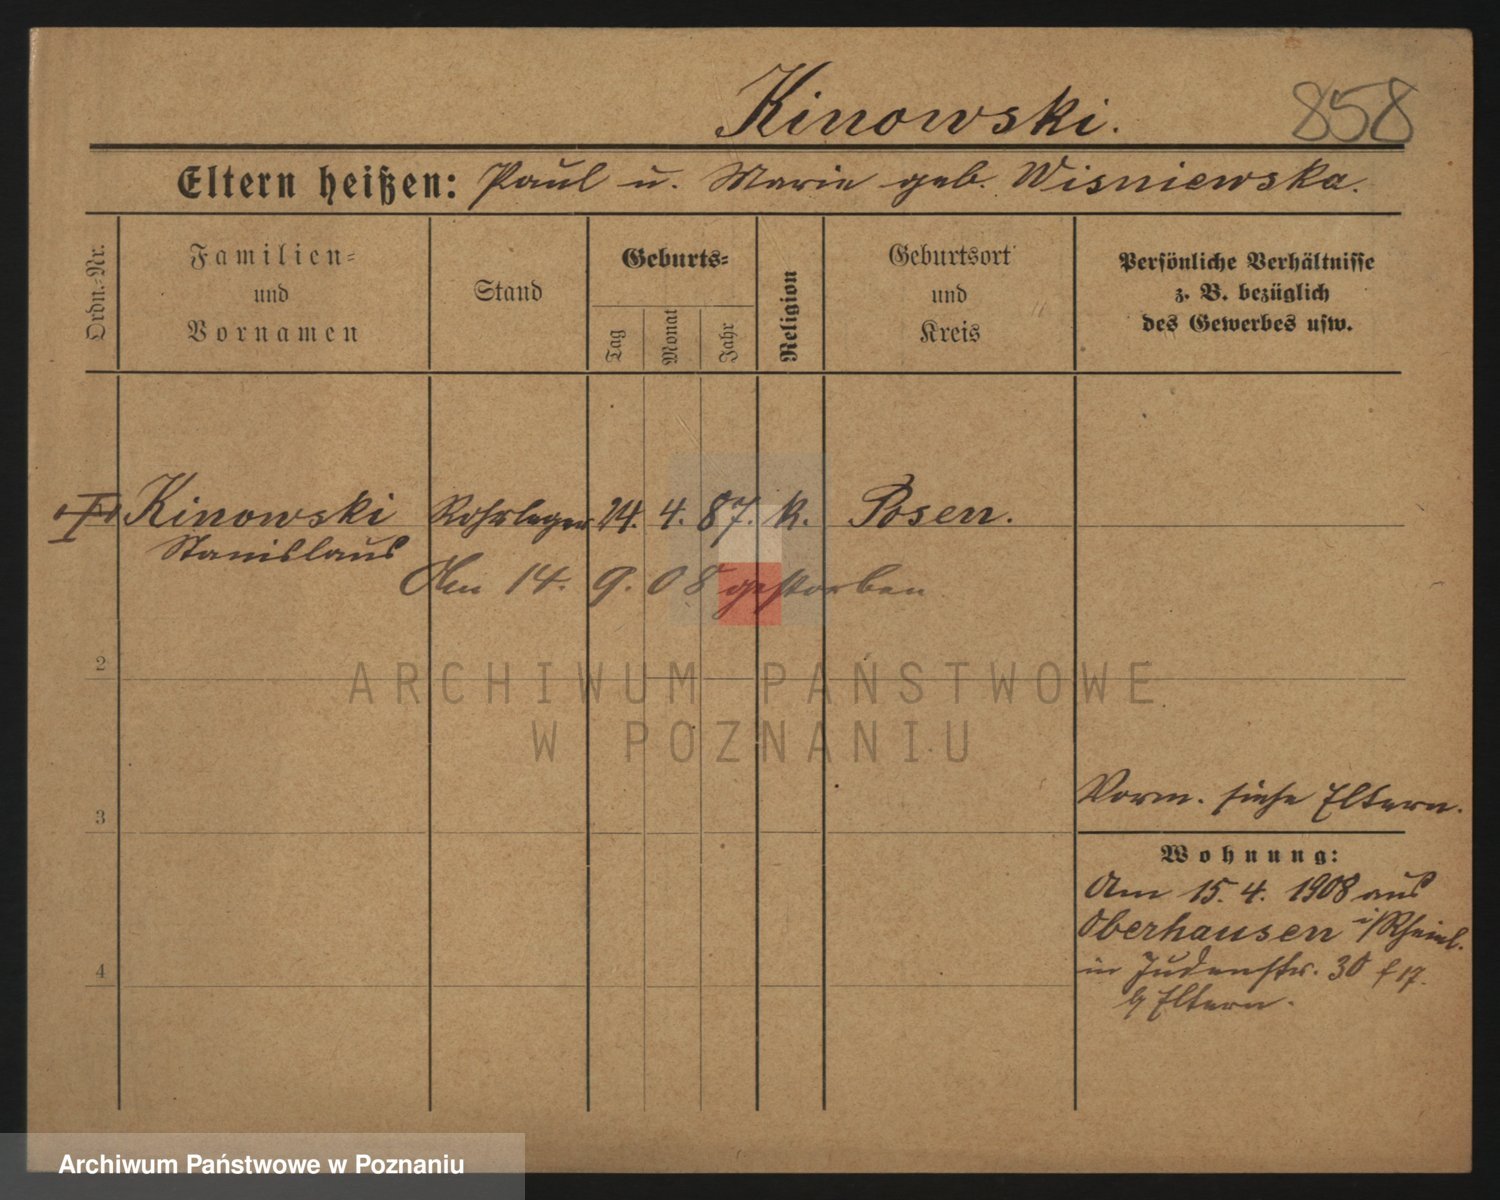 Kinowski.
858
Eltern heißen: Paul u. Marie geb. Wisniewska.
Ordn.-Nr.
Familien-
und
Vornamen
Stand
Geburts-
Tag
Monat
Jahr
Religion
Geburtsort
und
Kreis
Persönliche Verhältnisse
z. B. bezüglich
des Gewerbes usw.
Kinowski Rohrleger 24. 4. 87. k. Posen.
Stanislaus
Am 14. 9. 08 gestorben
2
ARCHIWUM PAŃSTWOWE
W POZNANIU
3
Vorm. siehe Eltern.
Wohnung:
Am 15. 4. 1908 aus
Oberhausen i/Rheinl.
4
in Judenstr. 30 f 17.
b Eltern.
Archiwum Państwowe w Poznaniu